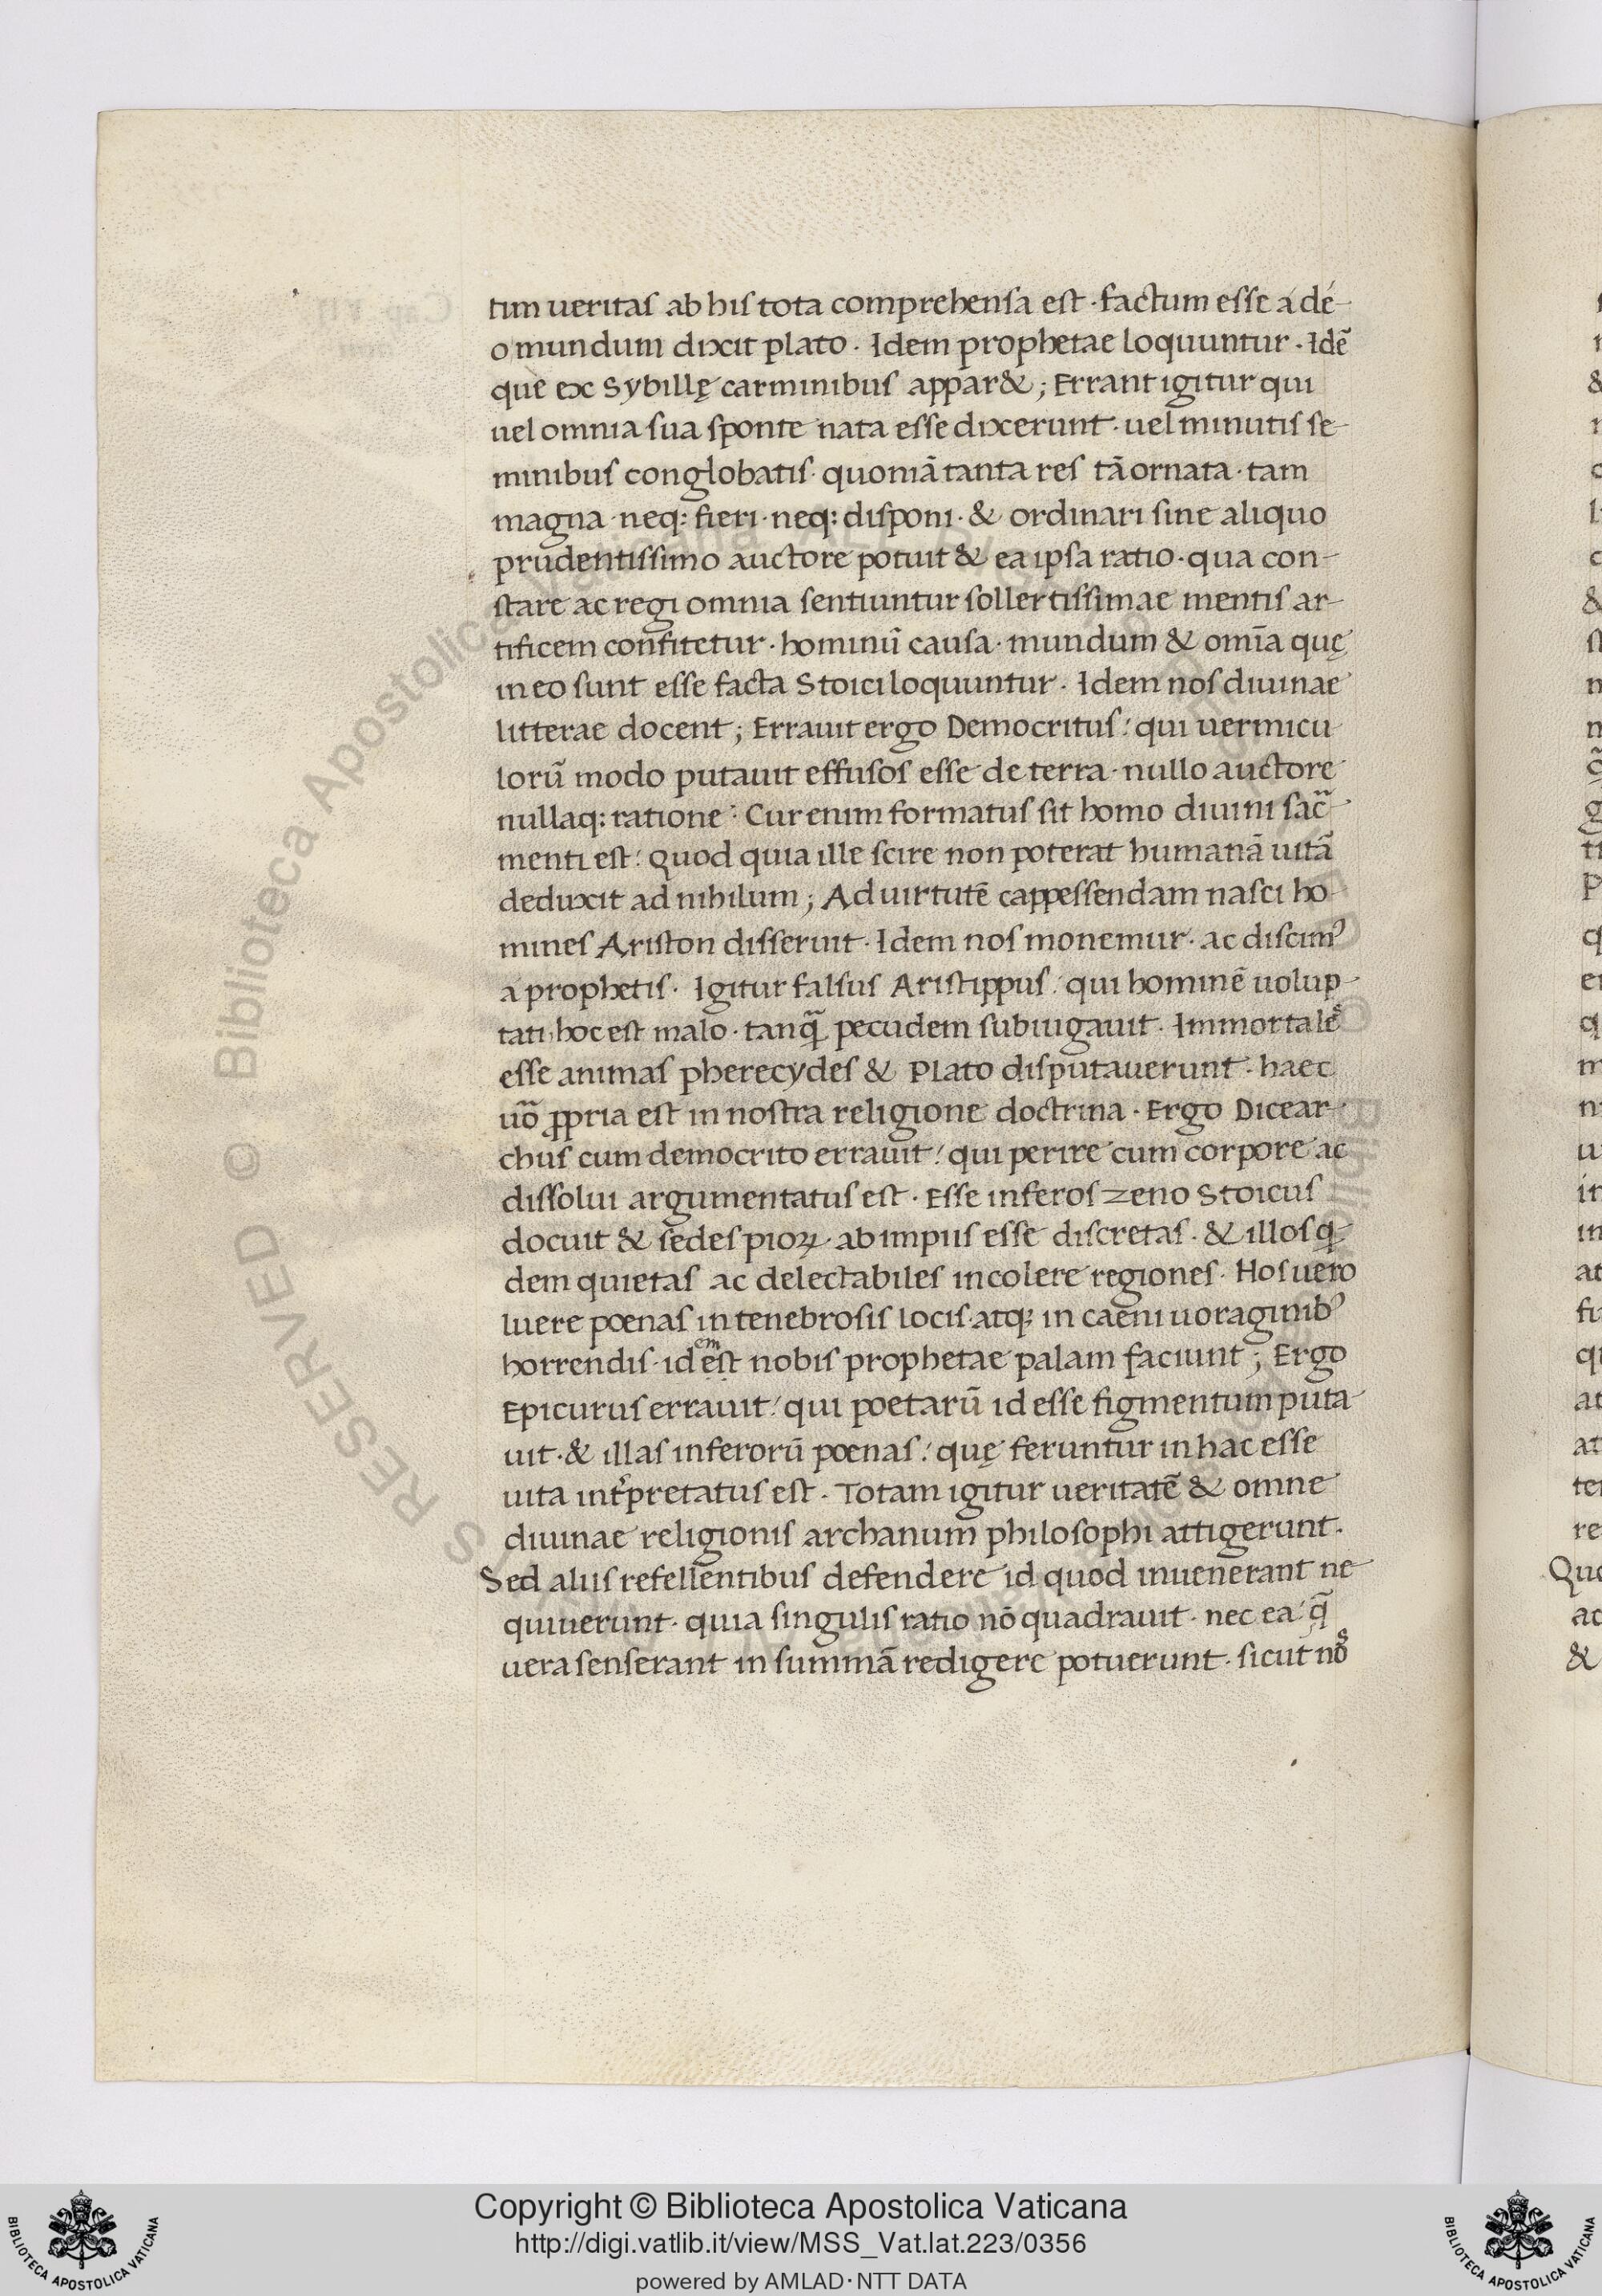 tim ueritas ab his tota comprehensa est · factum esse á dé-
o mundum dixit plato · Idem prophetae loquuntur · Idē
que ex Sybillę carminibus appar& ; Errant igitur qui
uel omnia sua sponte nata esse dixerunt · uel minutis se-
minibus conglobatis · quoniā tanta res tā ornata · tam
magna · neq: fieri · neq: disponi · & ordinari sine aliquo
prudentissimo auctore potuit & ea ipsa ratio · qua con-
stare ac regi omnia sentiuntur sollertissimae mentis ar-
tificem confitetur · hominū causa · mundum & omīa quę
in eo sunt esse facta Stoici loquuntur · Idem nos diuinae
litterae docent ; Errauit ergo Democritus : qui uermicu
lorū modo putauit effusos esse de terra · nullo auctore
nullaq: ratione · Cur enim formatus sit homo diuini sac̄-
menti est : Quod quia ille scire non poterat humanā uitā
deduxit ad nihilum ; Ad uirtutē cappessendam nasci ho-
mines Ariston disseruit · Idem nos monemur · ac discimꝰ
a prophetis · Igitur falsus Aristippus : qui hominē uolup-
tati · hoc est malo · tanq̄ pecudem subiugauit · Immortales
esse animas pherecydes & Plato disputauerunt · haec
uō ꝓpria est in nostra religione doctrina · Ergo Dicear-
chus cum democrito errauit : qui perire cum corpore ac
dissolui argumentatus est · Esse inferos zeno Stoicus
docuit & sedes pioꝝ · ab impiis esse discretas · & illos ꝗ-
dem quietas ac delectabiles incolere regiones · Hos uero
luere poenas in tenebrosis locis · atq; in caeni uoraginibꝰ
horrendis · id em est nobis prophetae palam faciunt ; Ergo
Epicurus errauit : qui poetarū id esse figmentum puta-
uit · & illas inferorū poenas : quę feruntur in hac esse
uita int̉pretatus est · Totam igitur ueritatē & omne
diuinae religionis archanum philosophi attigerunt ·
Sed aliis refellentibus defendere id quod inuenerant ne-
quiuerunt · quia singulis ratio nō quadrauit · nec ea q̄
uera senserant in summā redigere potuerunt · sicut nos
Copyright © Biblioteca Apostolica Vaticana
http://digi.vatlib.it/view/MSS_Vat.lat.223/0356
powered by AMLAD·NTT DATA
BIBLIOTECA APOSTOLICA VATICANA
BIBLIOTECA APOSTOLICA VATICANA